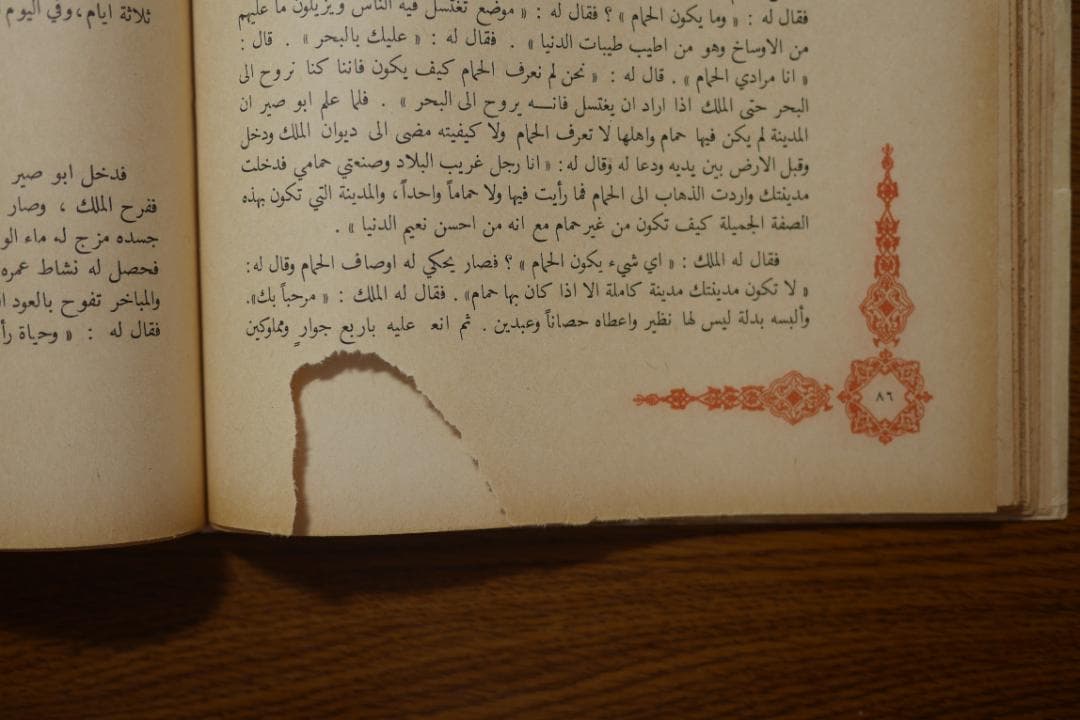 فقال له : « وما يكون الحمام » ؟ فقال له : « موضع تغتسل فيه الناس ويزيلون ما عليهم
من الاوساخ وهو من اطيب طيبات الدنيا » . فقال له : « عليك بالبحر » . قال :
« انا مرادي الحمام » . قال له : « نحن لم نعرف الحمام كيف يكون فاننا كنا نروح الى
البحر حتى الملك اذا اراد ان يغتسل فانه يروح الى البحر » . فلما علم ابو صير ان
المدينة لم يكن فيها حمام واهلها لا تعرف الحمام ولا كيفيته مضى الى ديوان الملك ودخل
وقبل الارض بين يديه ودعا له وقال له : « انا رجل غريب البلاد وصنعتي حمامي فدخلت
مدينتك واردت الذهاب الى الحمام فما رأيت فيها ولا حماماً واحداً، والمدينة التي تكون بهذه
الصفة الجميلة كيف تكون من غير حمام مع انه من احسن نعيم الدنيا » .
فقال له الملك : « اي شيء يكون الحمام » ؟ فصار يحكي له اوصاف الحمام وقال له :
« لا تكون مدينتك مدينة كاملة الا اذا كان بها حمام» . فقال له الملك : « مرحباً بك».
وألبسه بدلة ليس لها نظير واعطاه حصاناً وعبدين . ثم انعـ عليه باربع جوارٍ ومملوكين
٨٦
ثلاثة ايام ، وفي اليوم
فدخل ابو صير
ففرح الملك ، وصار
جسده مزج له ماء الو
فحصل له نشاط عمره
والمباخر تفوح بالعود ا
فقال له : « وحياة رأ